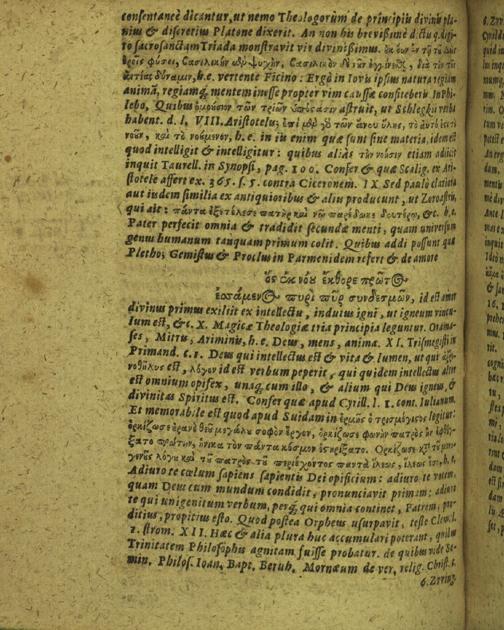 consentaneè dicantur, ut nemo Theologorum de principiis divinis
nius & discretius Platone dixerit. An non his brevißimè
ro sacrosanctam Triada monstravit vir divinißimus.
h.e. vertente Ficino: Ergò in Iovis ipsius natura regiam
animã, regiamq; mentem inesse propter vim caussæ confiteberis. In Phi-
lebo, Quibus ὁμούσιον τῶν τριῶν astruit, ut Schleghii
habent. d. l, VIII. Aristoteles,
νοῦν, καὶ τὸ νοούμενον, h.e. in iis enim quæ sunt sine materia, idem est
quod intelligit & intelligitur: quibus aliàs τὴν νόησιν etiam
inquit Taurell. in Synopsi, pag. 100. Confer & quæ Scalig. ex Ari-
stotele affert ex. 365. s. 5. contra Ciceronem. IX Sed paulò
aut iisdem similia ex antiquioribus & alii producunt, ut Zoroastris,
qui ait: πάντα ἐξετέλεσε πατὴρ καὶ νῷ παρέδωκε δευτέρῳ, &c. h.e.
Pater perfecit omnia & tradidit secundæ menti, quam universum
genus humanum tanquam primum colit. Quibus addi possunt quæ
Pletho, Gemistus & Proclus in Parmenidem refert & de amore
ὃς ἐκ νόου ἔκθορε πρῶτος
ἑσσάμενος πυρὶ πῦρ συνδεσμῶν, id est amor
divinus primus exiliit ex intellectu, indutus igni, ut igneum vincu-
lum est, &c. X. Magicæ Theologiæ tria principia leguntur.
ses, Mitris, Ariminis, h.e. Deus, mens, anima. XI. Trismegisti in
Primand. c. 1. Deus qui intellectus est & vita & lumen, ut qui
est, λόγον id est verbum peperit, qui quidem intellectus
est omnium opifex, unaq; cum illo, & alium qui Deus igneus, &
divinitas Spiritus est. Confer quæ apud Cyrill. l. 1. cont. Iulianum.
Et memorabile est quod apud Suidam in ἑρμῆς ὁ τρισμέγιστος legitur:
ὁρκίζω σε οὐρανὲ θεοῦ μεγάλου σοφὸν ἔργον, ὁρκίζω σε φωνὴν πατρὸς
πρώτην, ἡνίκα τὸν πάντα κόσμον ἐστηρίξατο. Ὁρκίζω σε
λόγου καὶ τοῦ πατρὸς τοῦ περιέχοντος πάντα ἵλεως, ἵλεως ἔσο, h.e.
Adiuro te cœlum sapiens sapientis Dei opificium: adiuro te vocem,
quam Deus cum mundum condidit, pronunciavit primam: adiuro
te qui unigenitum verbum, perq; qui omnia continet, Patrem,
ditius, propitius esto. Quod postea Orpheus usurpavit, teste Clem. l.
1. strom. XII. Hæc & alia plura huc accumulari poterant, quibus
Trinitatem Philosophis agnitam fuisse probatur. de quibus vide
min. Philos. Ioan. Bapt. Mornæum de ver. relig. Christ.